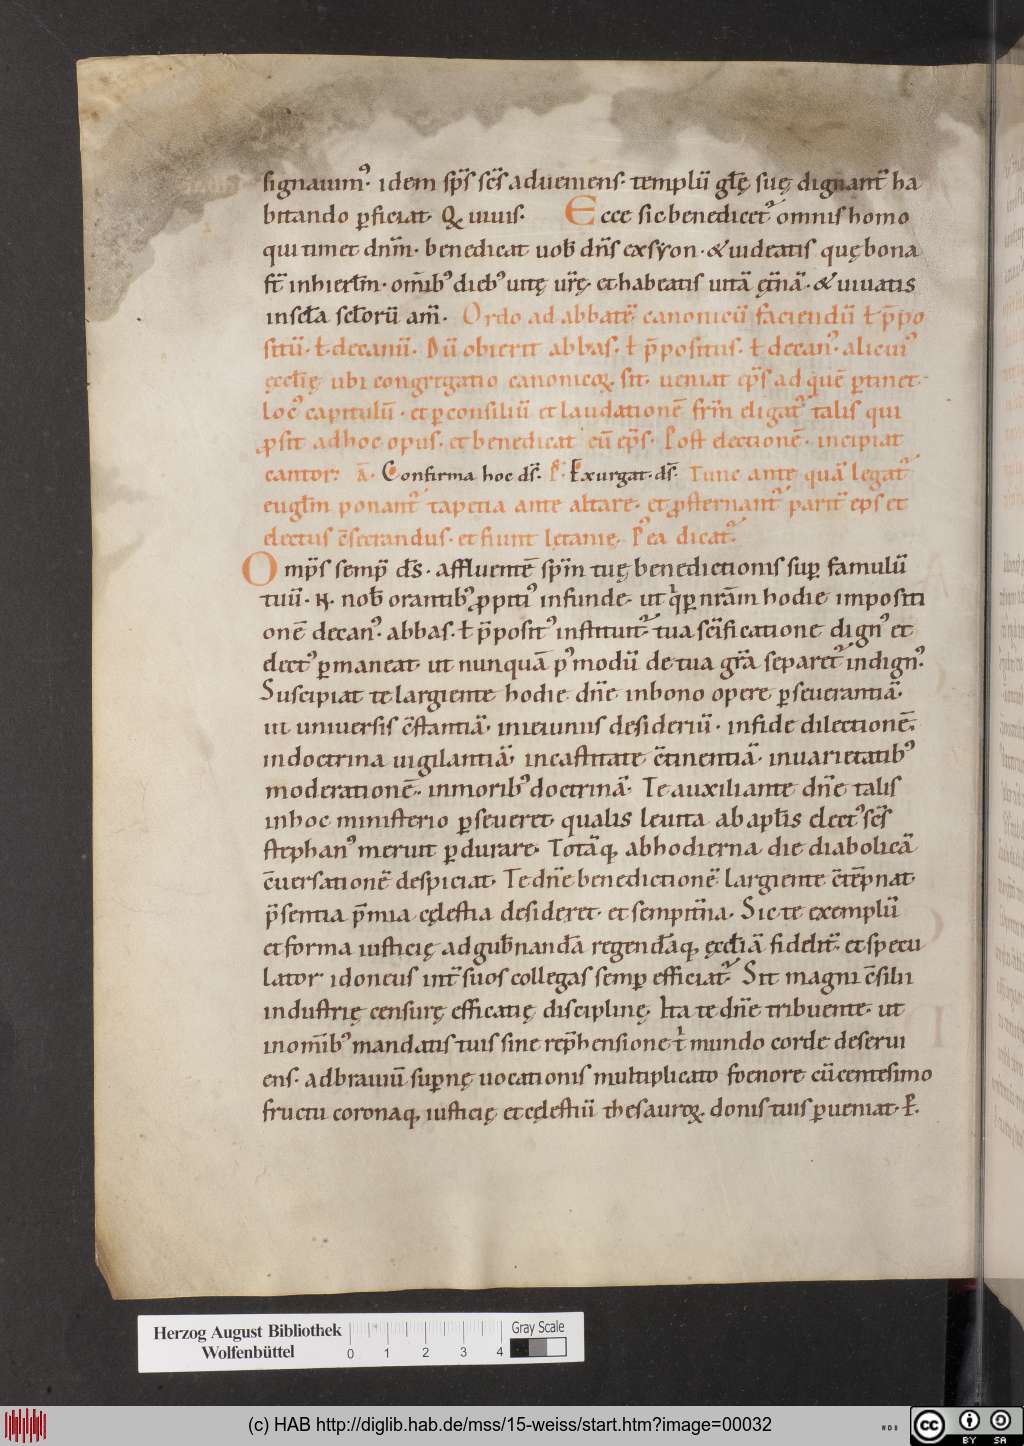 signauim᷒· idem sp̅s sc̅s adueniens· templu̅ gl̅ę suę dignant̅ ha
bitando ꝑficiat· Q̵ uiuis. Ecce sic benedicet᷒ omnis homo
qui timet dn̅m· benedicat uob̅ dn̅s exsyon· & uideatis quę bona
st̅ inhierl̅m· om̅ib᷒ dieb᷒ uitę ur̅ę· et habeatis uita̅ ęt̅na̅· & uiuatis
insc̅la sc̅lorū am̅. Ordo ad abbate̅ canonicū faciendū ł p̅po
situ̅· ł decanū. Dū obierit abbas· ł p̅positus· ł decan᷒ alicui᷒
ęccl̅ię ubi congregatio canonicoꝝ sit· ueniat ep̅s ad que̅ ꝑtinet·
loc᷒ capitulu̅· et ꝑ consiliū et laudatione̅ fr̅m eligat᷒ talis qui
ꝓsit adhoc opus· et benedicat᷒ cū ep̅s· Post electione̅· incipiat
cantor: a̅· Confirma hoc ds̅· P̅· Exurgat· ds̅· Tunc ante qua̅ legat᷒
eugl̅m ponant᷒ tapetia ante altare· et ꝓsternant᷒ parit̅ ep̅s et
electus c̅secrandus· et fiunt lętanię· P᷒ ea dicat᷒·
Omp̅s semp̅ ds̅· affluente̅ sp̅m tuę benedictionis suꝑ famulū
tuū· N· nob̅ orantib᷒ ꝓpiti᷒ infunde· ut qͥ ꝑ nr̅am hodie impositi
one̅ decan᷒· abbas· ł p̅posit᷒ instituit᷒ tua sc̅ificatione dign᷒ et
elect᷒ ꝑmaneat· ut nunqua̅ p᷒modu̅ de tua gr̅a separet᷒ indign᷒·
Suscipiat te largiente hodie dn̅e inbono opere ꝑseuerantia̅·
in uniuersis c̅stantia̅· inieiuniis desideriū· infide dilectione̅·
indoctrina uigilantia̅· incastitate c̅tinentia̅· inuarietatib᷒
moderatione̅· inmorib᷒ doctrina̅· Te auxiliante dn̅e talis
inhoc ministerio ꝑseueret· qualis leuita ab apl̅is elect᷒ sc̅s
stephan᷒ meruit ꝑdurare· Totaq̅ abhodierna die diabolica̅
c̅uersatione̅ despiciat· Te dn̅e benedictione̅ largiente c̅te̅pnat
p̅sentia p̅mia cęlestia desideret· et sempit̅na· Sic te exemplū
et forma iusticię adgub̅nanda̅ regenda̅q· ęccl̅ia̅ fidelit̅· et specu
lator idoneus int̅ suos collegas semꝑ efficiat᷒· Sit magni c̅silii
industrię censurę efficatię disciplinę· Ita te dn̅e tribuente· ut
inom̅ib᷒ mandatis tuis sine rep̅hensione tͥ mundo corde deserui
ens· adbrauiū suꝑnę uocationis multiplicato foenore cū centesimo
fructu coronaq· iusticię et cęlestiū thesauroꝝ donis tuis ꝑueniat· P̅·
Herzog August Bibliothek
Wolfenbüttel
0 1 2 3 4
Gray Scale
(c) HAB http://diglib.hab.de/mss/15-weiss/start.htm?image=00032
BY SA